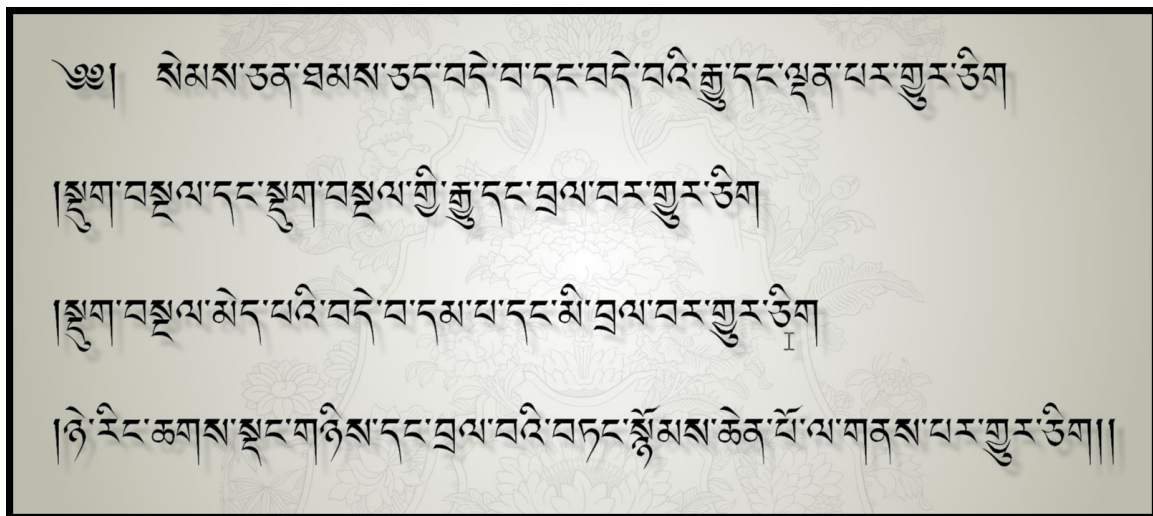 ༄༅། སེམས་ཅན་ཐམས་ཅད་བདེ་བ་དང་བདེ་བའི་རྒྱུ་དང་ལྡན་པར་གྱུར་ཅིག
།སྡུག་བསྔལ་དང་སྡུག་བསྔལ་གྱི་རྒྱུ་དང་བྲལ་བར་གྱུར་ཅིག
།སྡུག་བསྔལ་མེད་པའི་བདེ་བ་དམ་པ་དང་མི་བྲལ་བར་གྱུར་ཅིག
།ཉེ་རིང་ཆགས་སྡང་གཉིས་དང་བྲལ་བའི་བཏང་སྙོམས་ཆེན་པོ་ལ་གནས་པར་གྱུར་ཅིག།།